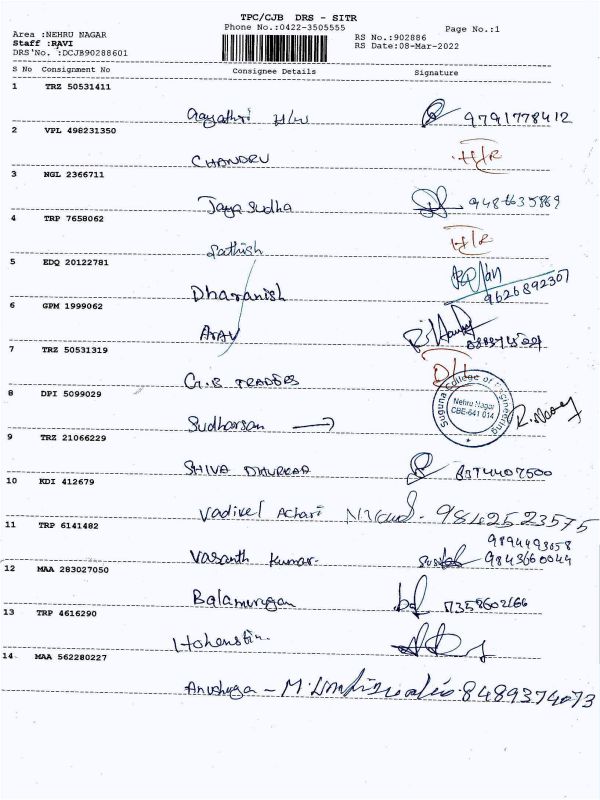 TPC/CJB DRS - SITR
Phone No.:0422-3505555
Page No.:1
Area :NEHRU NAGAR
Staff :RAVI
DRS No. :DCJB90288601
RS No.:902886
RS Date:08-Mar-2022
S No Consignment No Consignee Details Signature
1 TRZ 50531411
Gayathri H/W 9791778412
2 VPL 498231350
CHANDRU H/R
3 NGL 2366711
Jaya Sudha
4 TRP 7658062
Sathish H/R
5 EDQ 20122781
Dharanish 9626892307
6 GPM 1999062
Arav
7 TRZ 50531319
G.B TRADERS
8 DPI 5099029
Suguna College of Engineering
Nehru Nagar
CBE-641 014
Sudharsan
9 TRZ 21066229
SHIVA 8374407500
10 KDI 412679
Vadivel Achari 9842523575
11 TRP 6141482
9894493058
Vasanth Kumar. 9843660044
12 MAA 283027050
Balamurugan 7358602166
13 TRP 4616290
14 MAA 562280227
8489374073